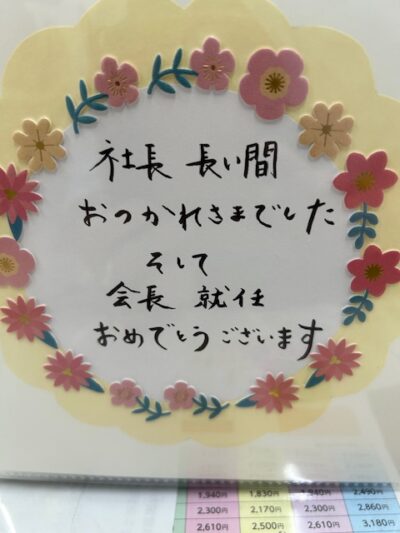 社長 長い間
おつかれさまでした
そして
会長 就任
おめでとうございます
1,940円 1,830円 1,940円 2,490円
2,300円 2,170円 2,300円 2,860円
2,610円 2,500円 2,610円 3,180円